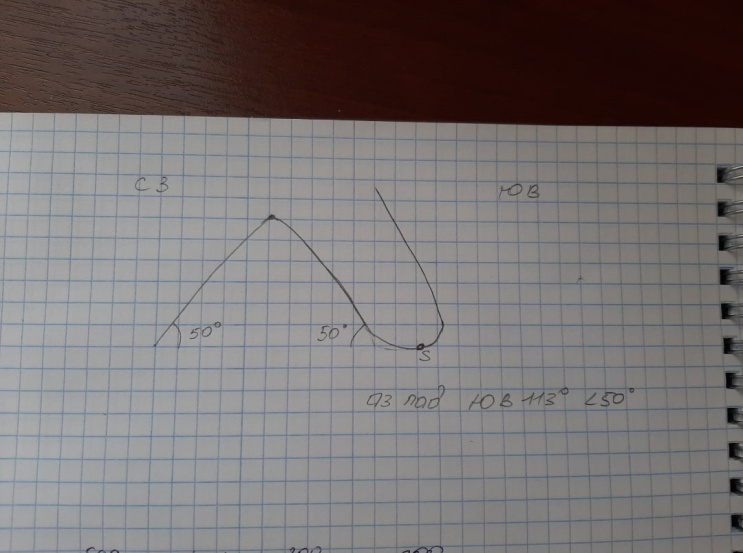 СЗ ЮВ
50° 50°
S
аз пад ЮВ 113° <50°